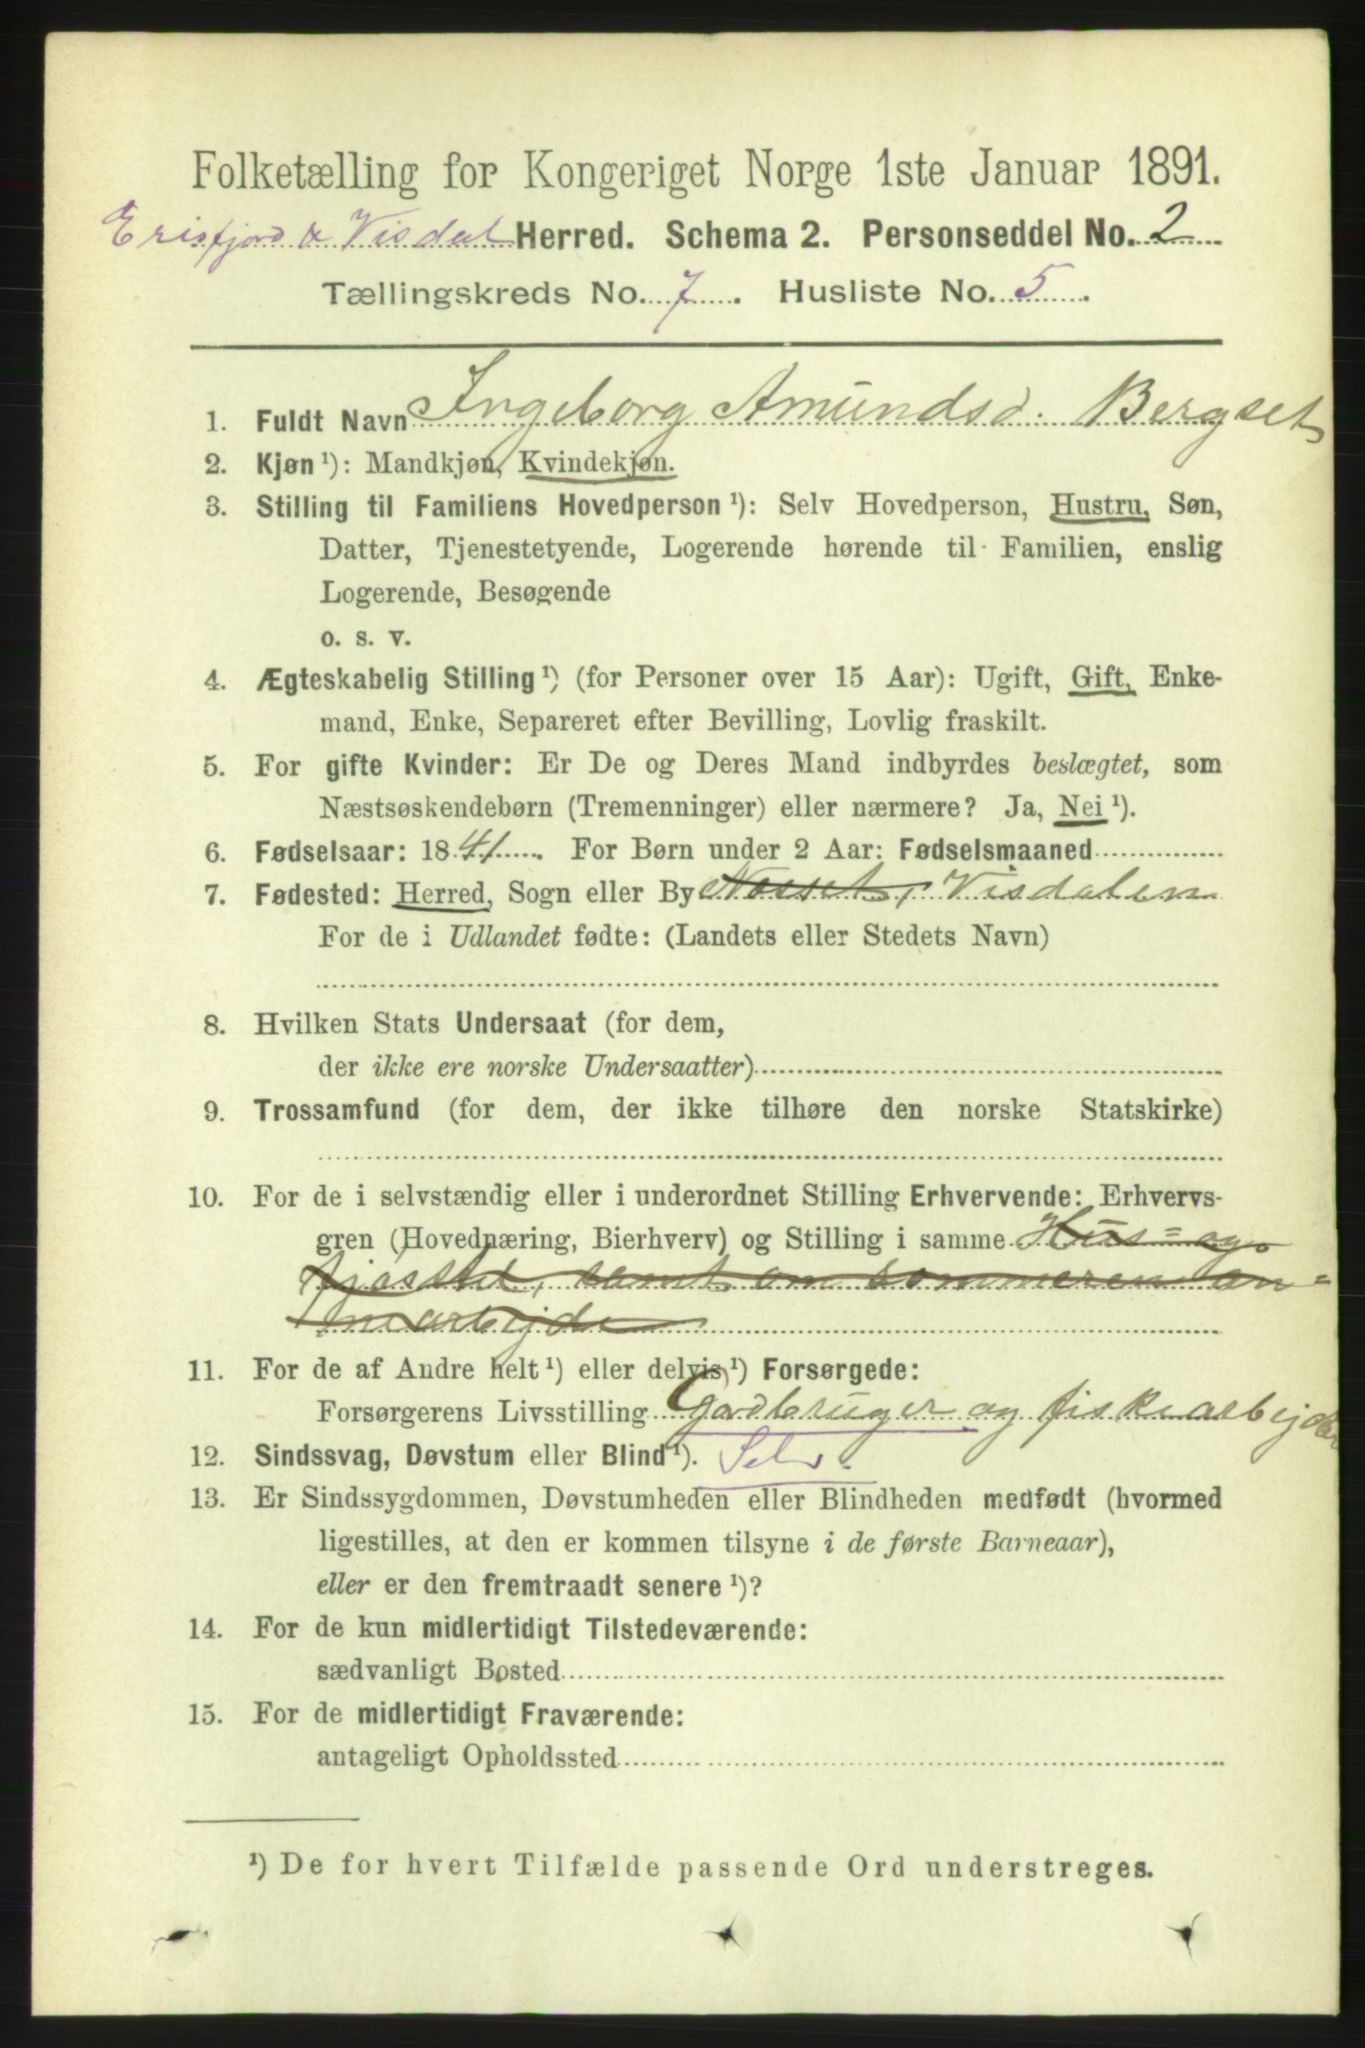 Folketælling for Kongeriget Norge 1ste Januar 1891.
Erisfjord & Visdal Herred. Schema 2. Personseddel No. 2
Tællingskreds No. 7. Husliste No. 5.
1. Fuldt Navn Ingeborg Amundsd. Bergset
2. Kjøn ¹): Mandkjøn, Kvindekjøn.
3. Stilling til Familiens Hovedperson ¹): Selv Hovedperson, Hustru, Søn,
Datter, Tjenestetyende, Logerende hørende til Familien, enslig
Logerende, Besøgende
o. s. v.
4. Ægteskabelig Stilling ¹) (for Personer over 15 Aar): Ugift, Gift, Enke-
mand, Enke, Separeret efter Bevilling, Lovlig fraskilt.
5. For gifte Kvinder: Er De og Deres Mand indbyrdes beslægtet, som
Næstsøskendebørn (Tremenninger) eller nærmere? Ja, Nei ¹).
6. Fødselsaar: 1841. For Børn under 2 Aar: Fødselsmaaned
7. Fødested: Herred, Sogn eller By Nesset, Visdalen
For de i Udlandet fødte: (Landets eller Stedets Navn)
8. Hvilken Stats Undersaat (for dem,
der ikke ere norske Undersaatter)
9. Trossamfund (for dem, der ikke tilhøre den norske Statskirke)
10. For de i selvstændig eller i underordnet Stilling Erhvervende: Erhvervs-
gren (Hovednæring, Bierhverv) og Stilling i samme Hus= og
fjøsstel, samt om sommeren an=
nearbejde
11. For de af Andre helt ¹) eller delvis ¹) Forsørgede:
Forsørgerens Livsstilling Gardbruger og fiskearbejder
12. Sindssvag, Døvstum eller Blind ¹). Selv.
13. Er Sindssygdommen, Døvstumheden eller Blindheden medfødt (hvormed
ligestilles, at den er kommen tilsyne i de første Barneaar),
eller er den fremtraadt senere ¹)?
14. For de kun midlertidigt Tilstedeværende:
sædvanligt Bosted
15. For de midlertidigt Fraværende:
antageligt Opholdssted
¹) De for hvert Tilfælde passende Ord understreges.